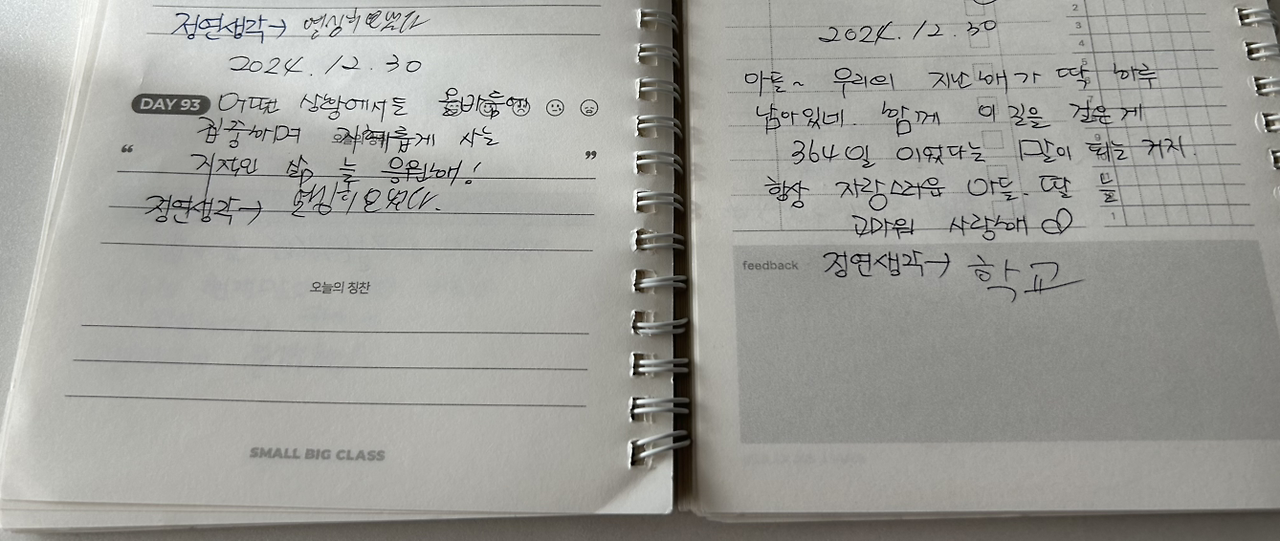 정연생각→ 열심히 오셨다
2024.12.30
DAY 93 어떤 상황에서든 올바름에
집중하며 지혜롭게 사는
“ 저자인 삶 늘 응원해! ”
정연생각→ 열심히 오셨다.
오늘의 칭찬
SMALL BIG CLASS
2
3
4
2024.12.30
아들~ 우리의 지난해가 딱 하루
남아있네. 함께 이 길을 걸은게
364일 이었다는 말이 되는 거지.
항상 자랑스러운 아들. 딸 들
고마워 사랑해
1
feedback 정연생각→ 학교